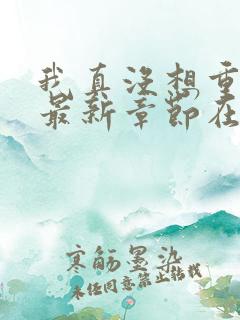 我真没想重
最新章节在
寒觞墨染
未经同意禁止转载